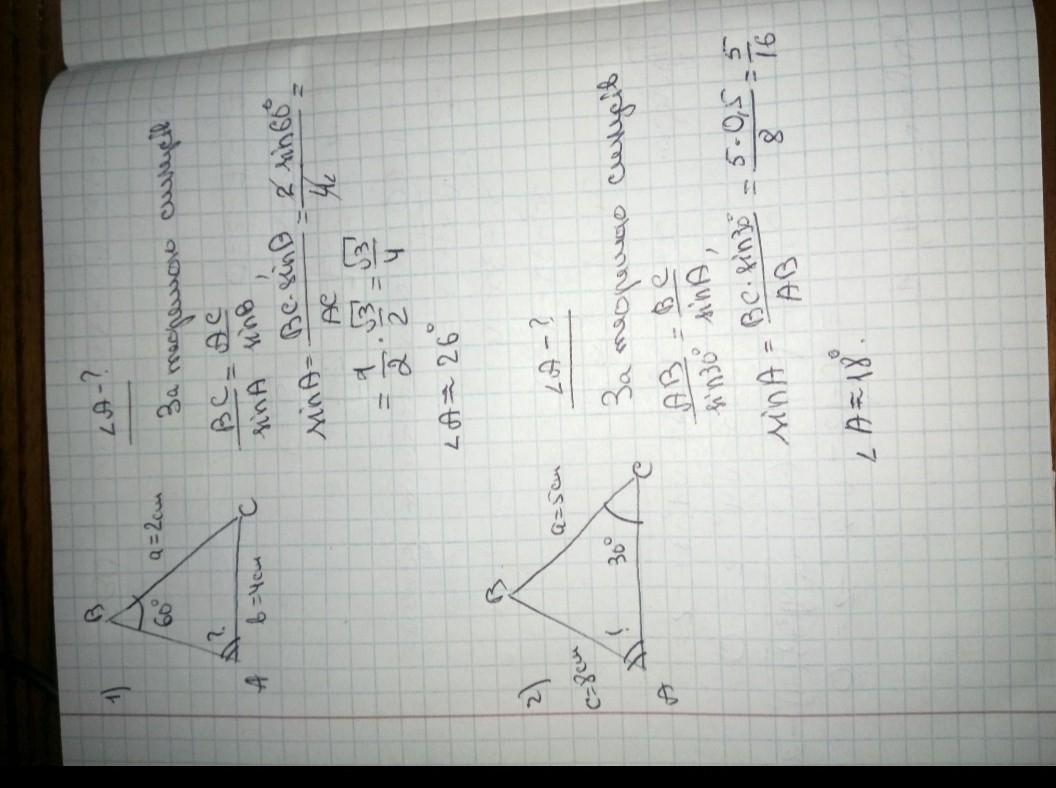 1)
B
60°
a=2см
?
A
b=4см
C
∠A-?
За теоремою синусів
BC/sinA = AC/sinB,
sinA = BC·sinB/AC = 2 sin60°/4 =
= 1/2 · √3/2 = √3/4
∠A≈26°
2)
B
c=8см
a=5см
30°
A
C
∠A-?
За теоремою синусів
AB/sin30° = BC/sinA,
sinA = BC·sin30°/AB = 5·0,5/8 = 5/16
∠A≈18°.